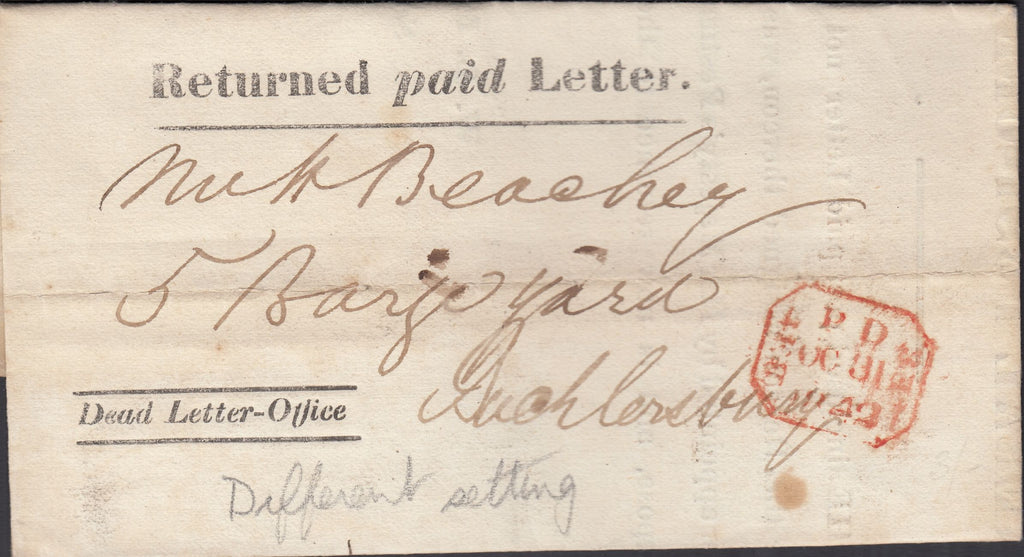 Returned paid Letter.
Mr H Beachey
5 Barge yard
Bucklersbury
P D
OC 31
1842
Dead Letter-Office
Different setting